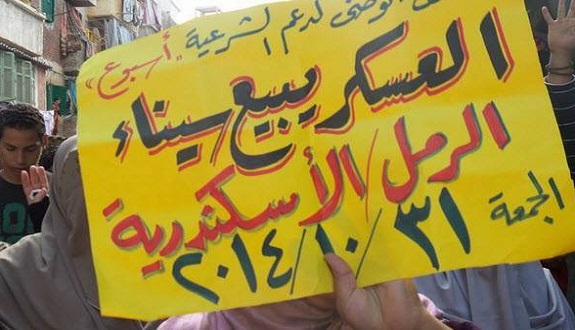 الوطنى لدعم الشرعية "أسبوع"
العسكر يبيع سيناء
الرمل/الأسكندرية
الجمعة ٣١/١٠/٢٠١٤